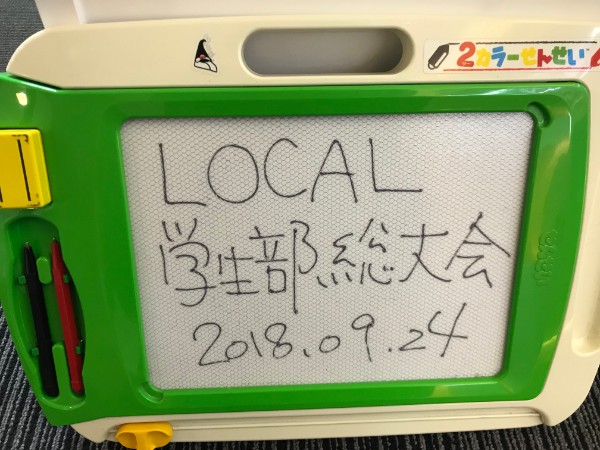 2カラーせんせい
LOCAL
学生部総大会
2018.09.24